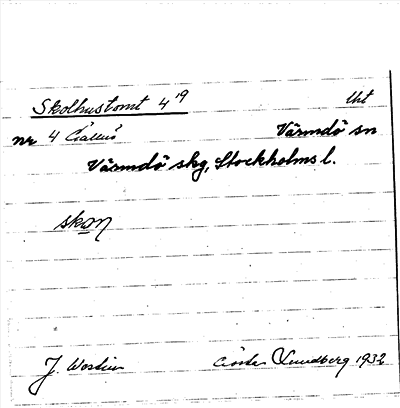 Skolhustomt 4¹⁹ Uht
nr 4 Värmdö sn
Värmdö skg, Stockholms l.
skon
J. Gösta Lundberg 1932